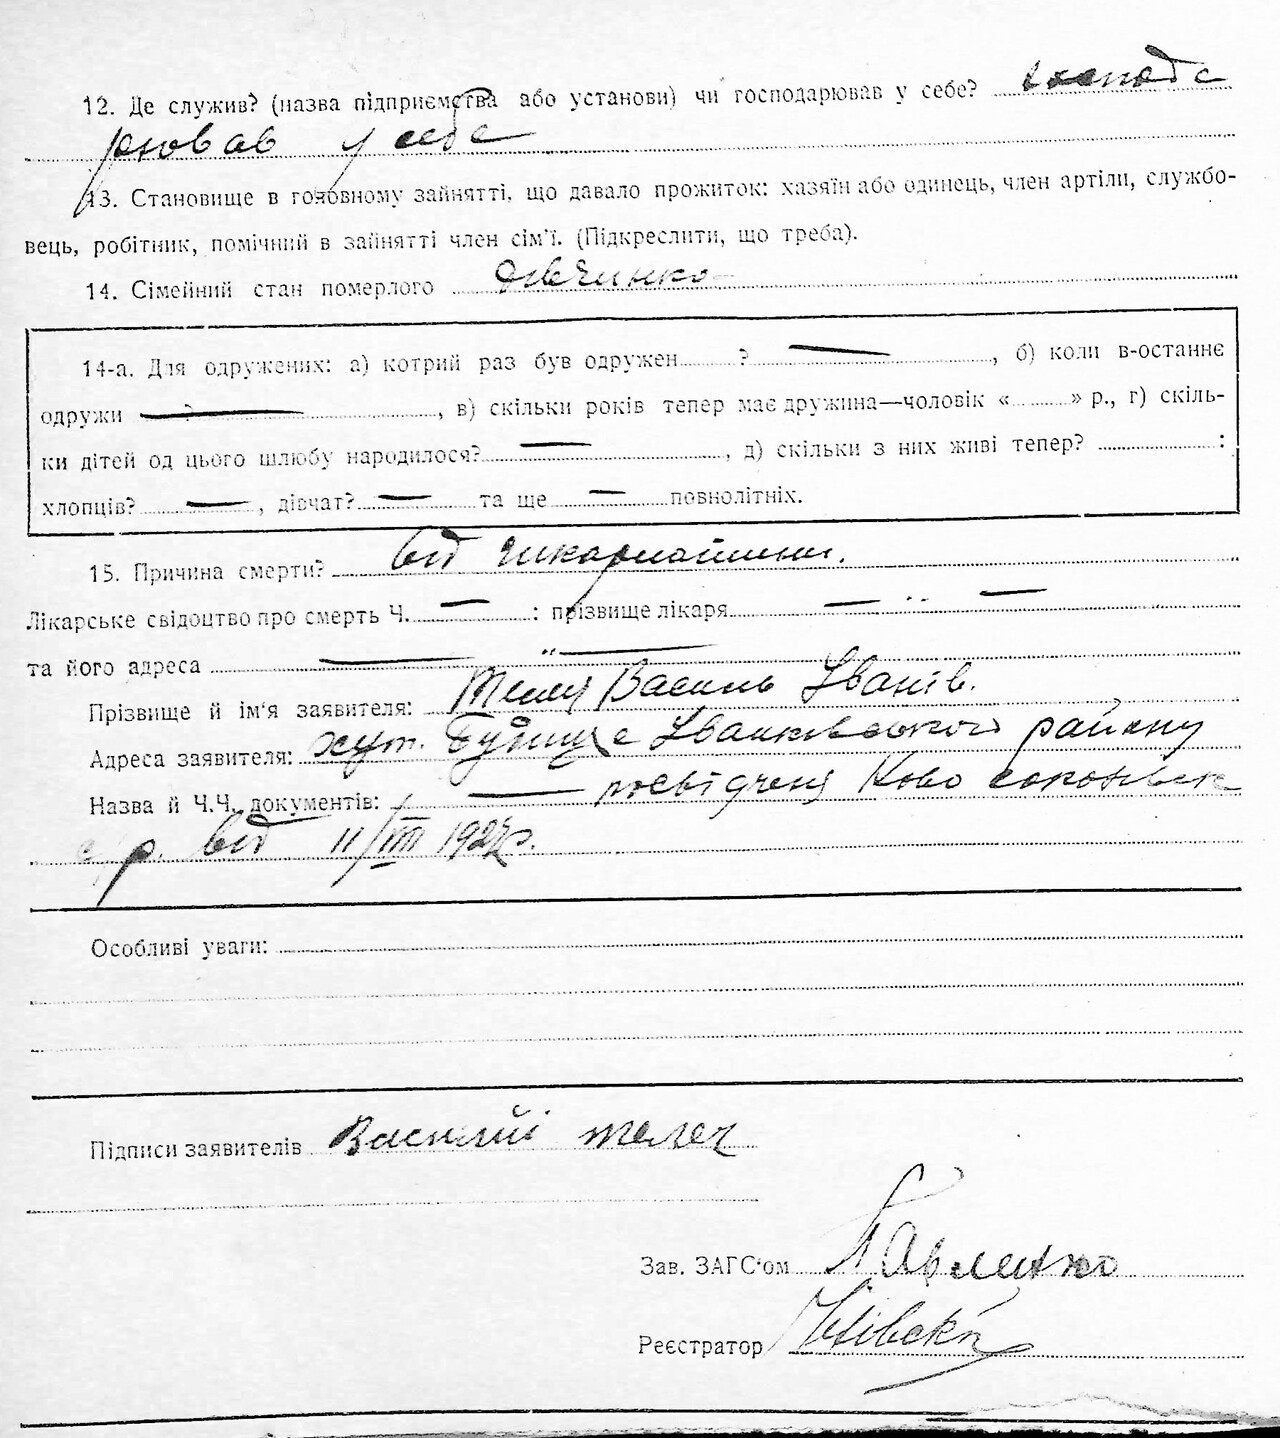 12. Де служив? (назва підприємства або установи) чи господарював у себе? господа
рював у себе
13. Становище в головному зайнятті, що давало прожиток: хазяїн або одинець, член артіли, службо-
вець, робітник, помічний в зайнятті член сім'ї. (Підкреслити, що треба).
14. Сімейний стан померлого
14-а. Для одружених: а) котрий раз був одружен ? —, б) коли в-останнє
одружи ? —, в) скільки років тепер має дружина—чоловік « » р., г) скіль-
ки дітей од цього шлюбу народилося? —, д) скільки з них живі тепер? :
хлопців? —, дівчат? — та ще — повнолітніх.
15. Причина смерти? від шкарлатини.
Лікарське свідоцтво про смерть Ч. — : прізвище лікаря — „ —
та його адреса — „ —
Прізвище й ім'я заявителя: Василь Іванів.
Адреса заявителя: хут. Будище Іванківського району
Назва й Ч.Ч. документів: — посвідченя
с/р. від 11/VIII 1927р.
Особливі уваги:
Підписи заявителів Василій телец
Зав. ЗАГС'ом Павленко
Реєстратор